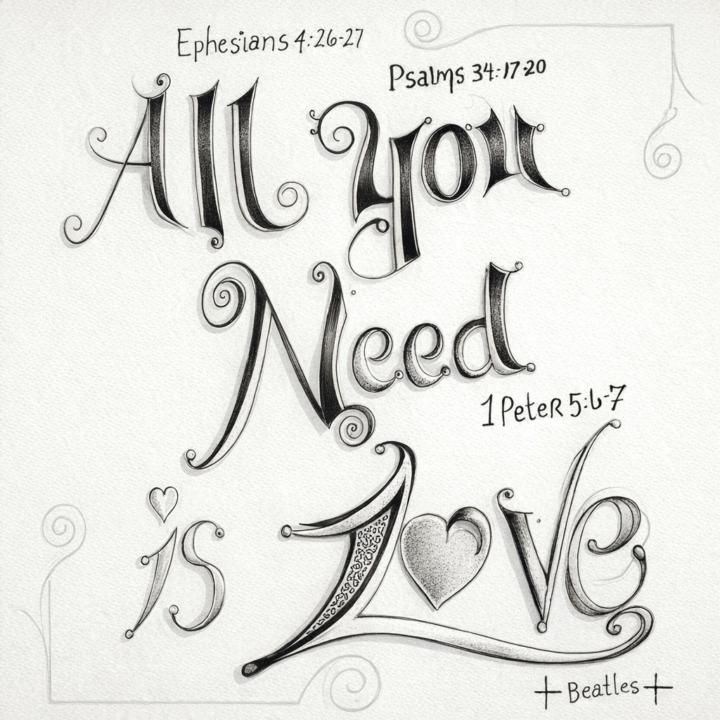 Ephesians 4:26-27
Psalms 34:17-20
All You
Need
1 Peter 5:6-7
is Love
Beatles